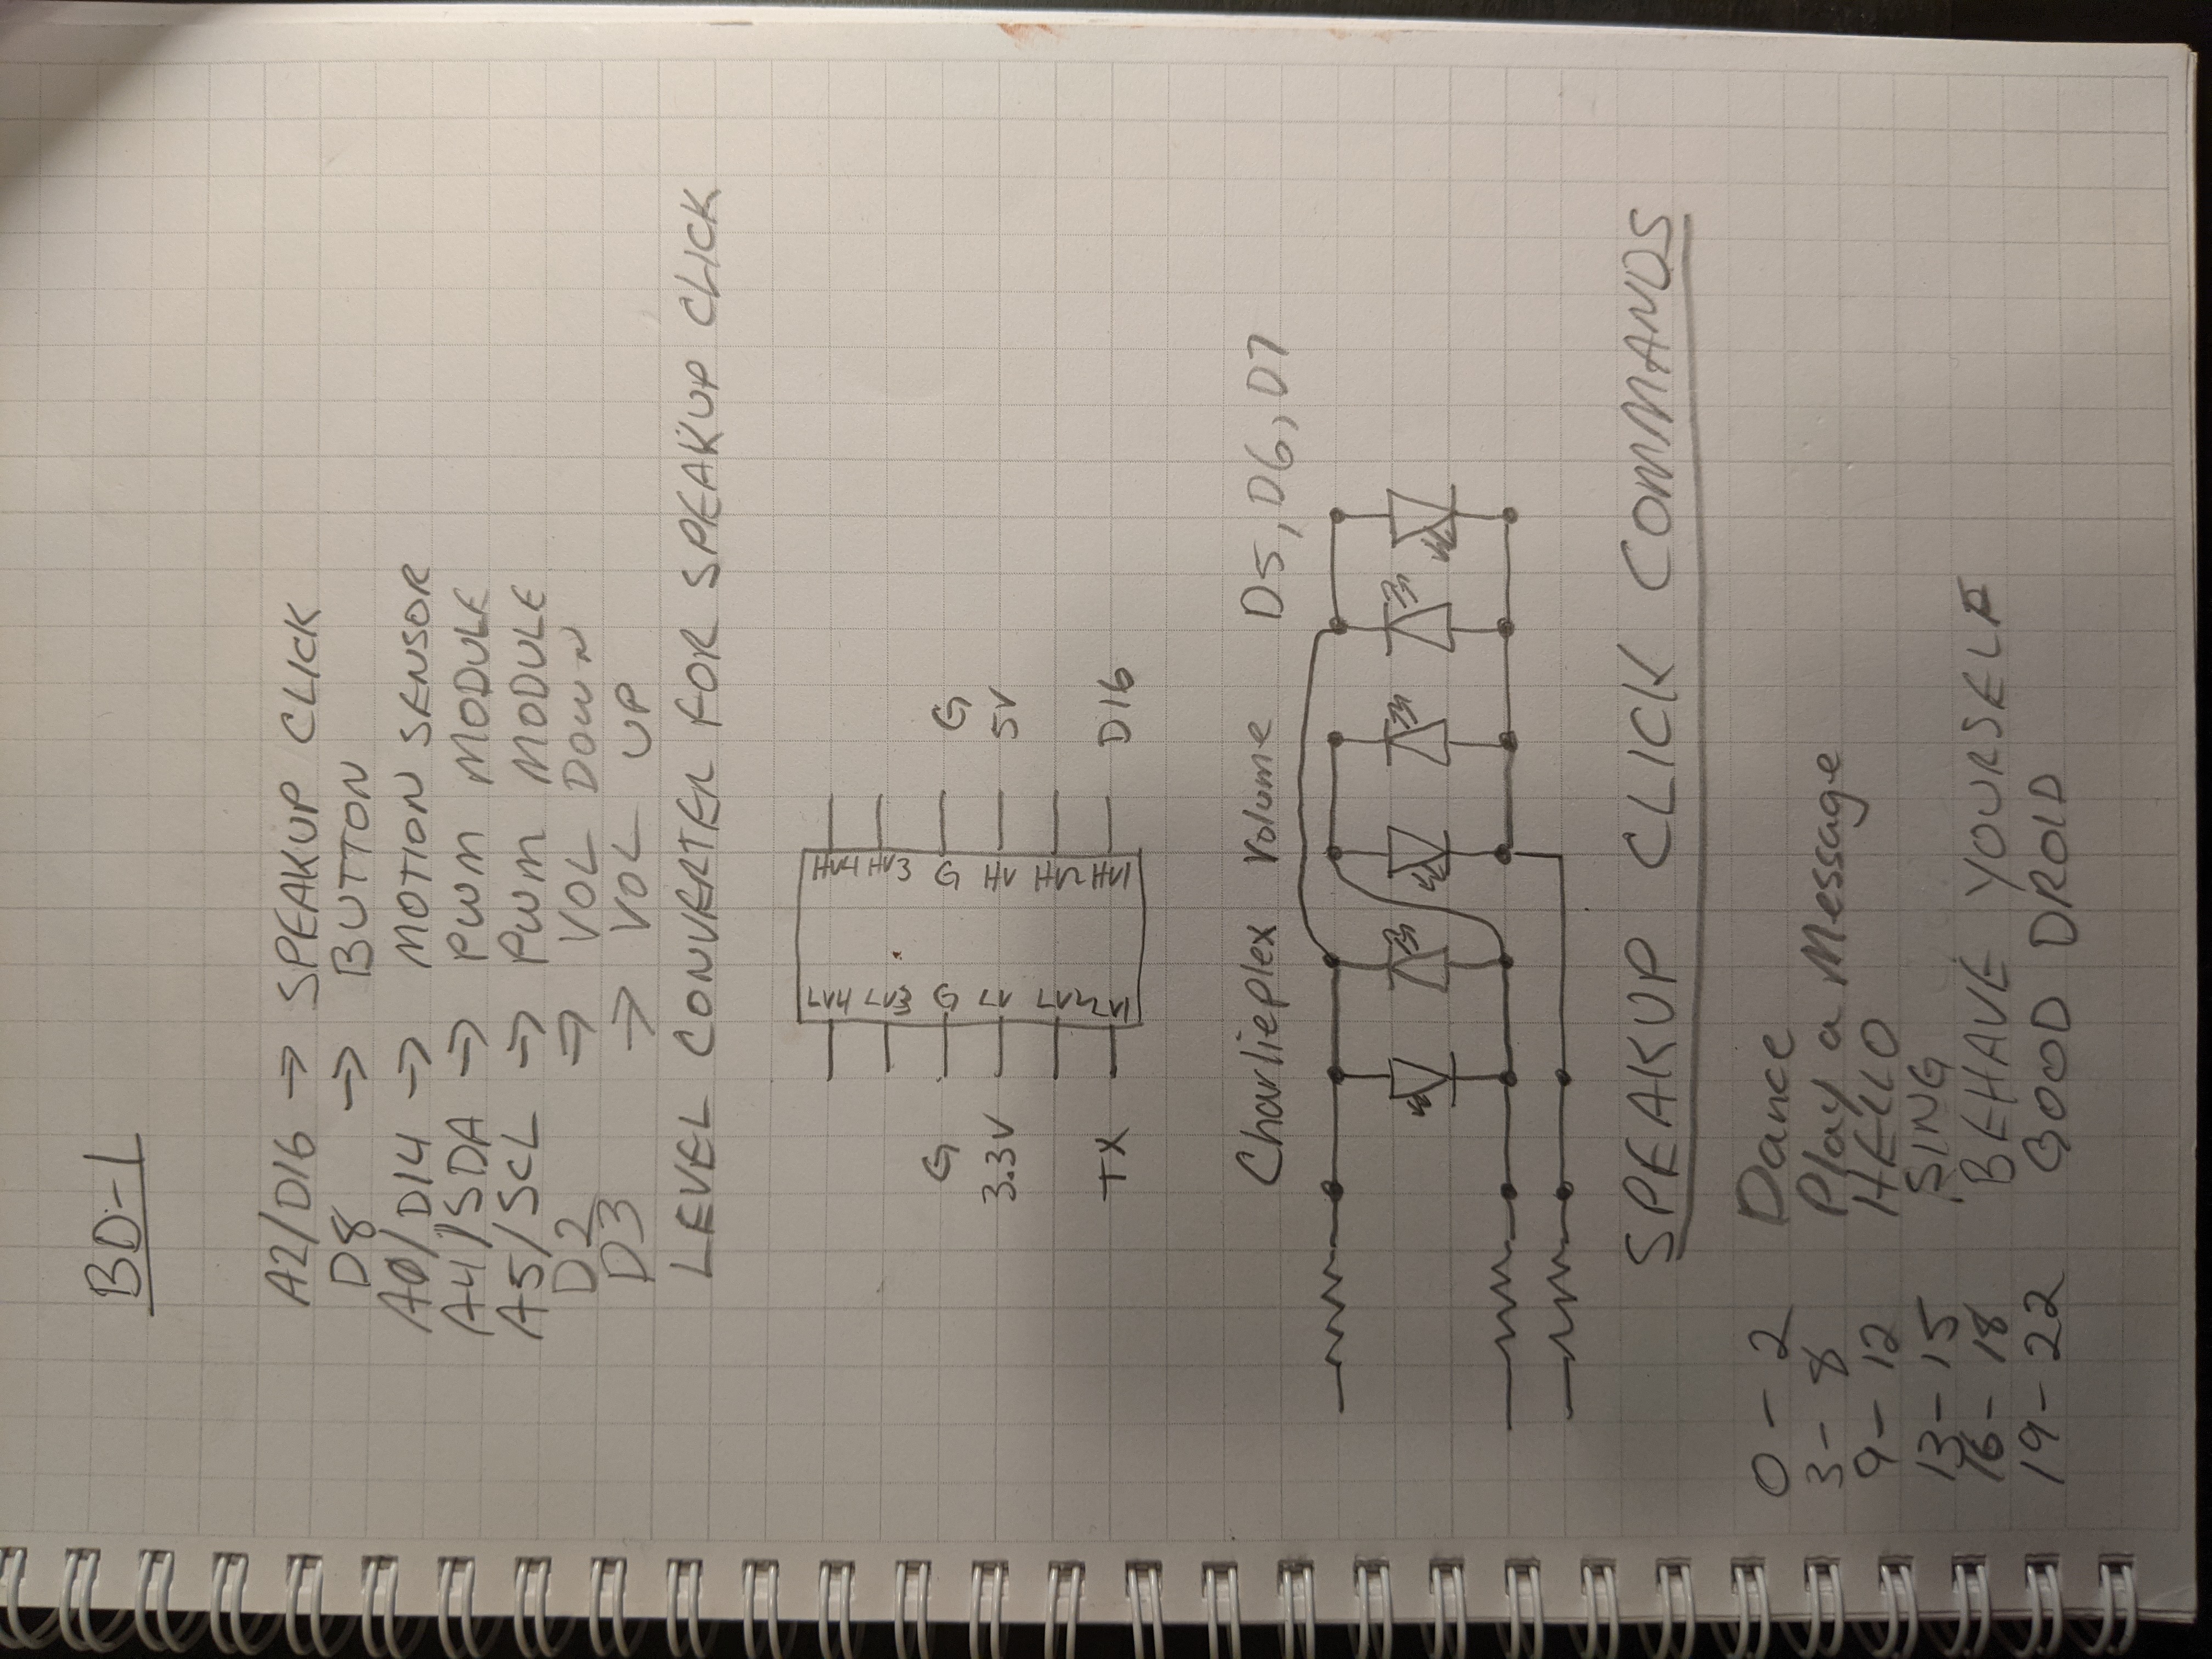 BD-1
A2/D16 → SPEAKUP CLICK
D8 → BUTTON
A0/D14 → MOTION SENSOR
A4/SDA → PWM MODULE
A5/SCL → PWM MODULE
D2 → VOL DOWN
D3 → VOL UP
LEVEL CONVERTER FOR SPEAKUP CLICK
LV4 HV4
LV3 HV3
G G G G
3.3V LV HV 5V
LV2 HV2
TX LV1 HV1 D16
Charlieplex Volume D5, D6, D7
SPEAKUP CLICK COMMANDS
0 - 2 Dance
3 - 8 Play a Message
9 - 12 HELLO
13 - 15 SING
16 - 18 BEHAVE YOURSELF
19 - 22 GOOD DROID